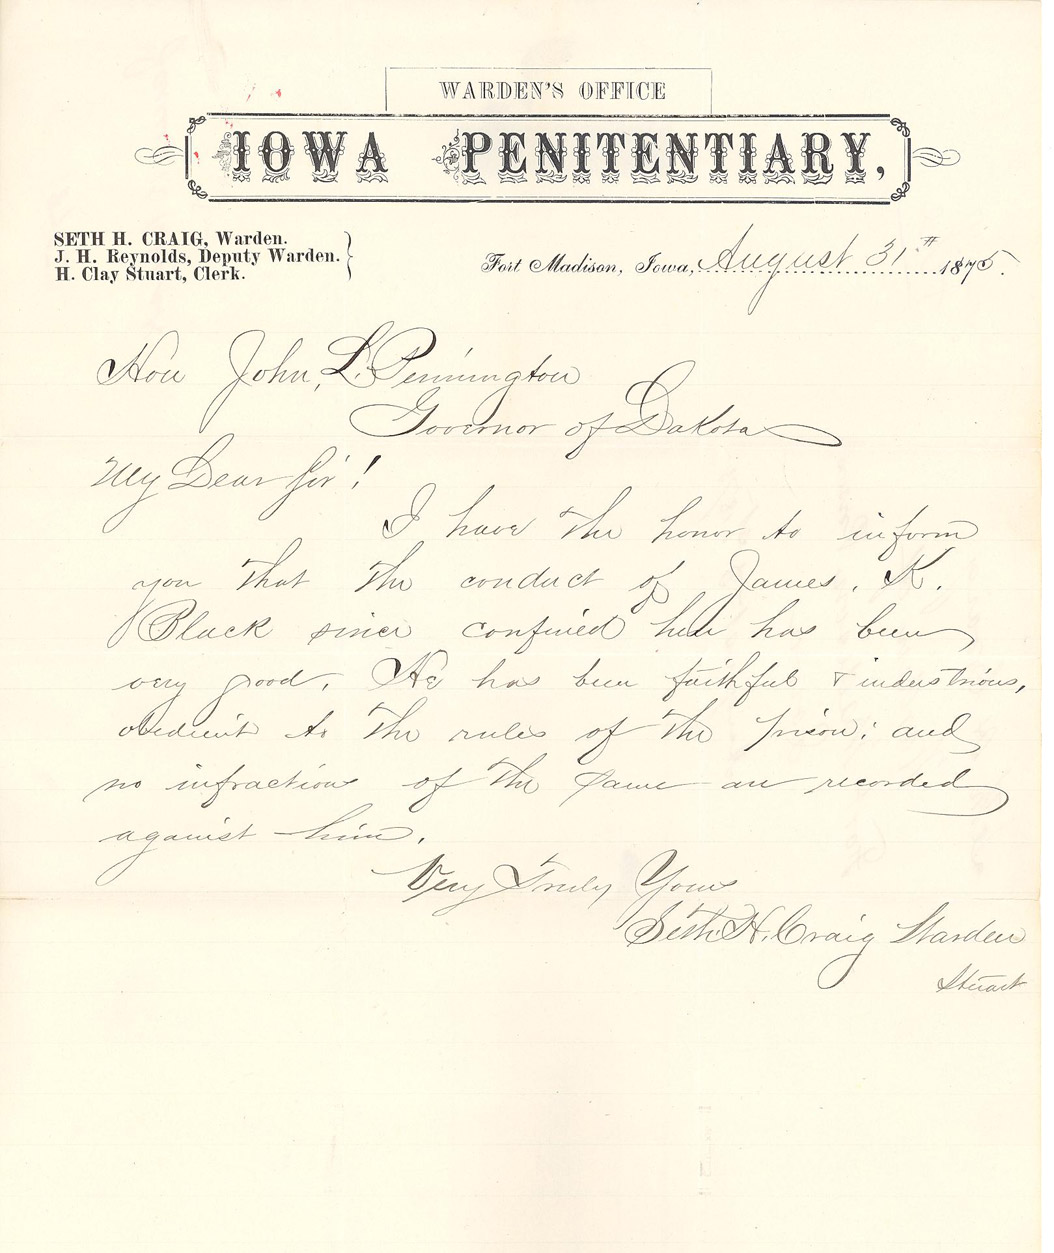 WARDEN'S OFFICE
IOWA PENITENTIARY,
SETH H. CRAIG, Warden.
J. H. Reynolds, Deputy Warden.
H. Clay Stuart, Clerk.
Fort Madison, Iowa, August 31st 1875.
Hon John, L. Pennington
Governor of Dakota
My Dear Sir!
I have the honor to inform
you that the conduct of James. K.
Black since confined here has been
very good. He has been faithful & industrious,
obedient to the rules of the prison; and
no infractions of the same are recorded
against him.
Very Truly Yours
Seth. H. Craig Warden
Stuart